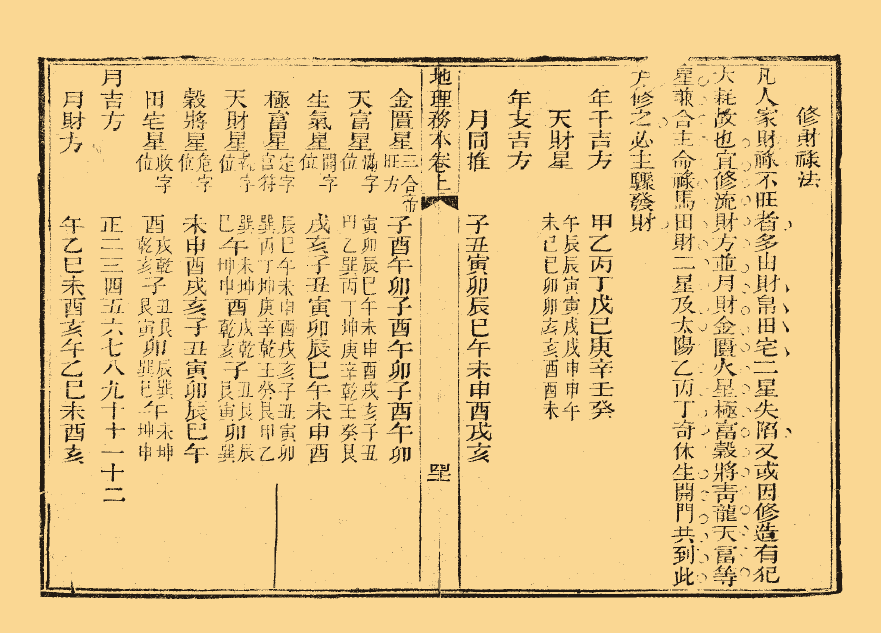 修財祿法
凡人家財祿不旺者多由財帛田宅二星失陷又或因修造有犯
大耗故也宜修流財方並月財金匱火星極富穀將青龍天富等
星兼合主命祿馬田財二星及太陽乙丙丁奇休生開門共到此
方修之必主驟發財
年干吉方 甲乙丙丁戊己庚辛壬癸
天財星 午辰辰寅寅戌戌申申午
未己巳卯卯亥亥酉酉未
年支吉方
月同推 子丑寅卯辰巳午未申酉戌亥
地理務本卷上
金匱星 三合帝旺方 子酉午卯子酉午卯子酉午卯
天富星 滿字位 寅卯辰巳午未申酉戌亥子丑
甲乙巽丙丁坤庚辛乾壬癸艮
生氣星 開字位 戌亥子丑寅卯辰巳午未申酉
極富星 定字宮符 辰巳午未申酉戌亥子丑寅卯
巽丙丁坤庚辛乾壬癸艮甲乙
天財星 位 巽午未坤申酉戌乾子丑艮卯辰
巳午坤申酉乾亥子艮寅卯巽
穀將星 危字位 未申酉戌亥子丑寅卯辰巳午
田宅星 收字位 酉戌乾子丑艮卯辰巽午未坤
乾亥艮寅巽巳坤申
月吉方 正二三四五六七八九十十一十二
月財方 午乙巳未酉亥午乙巳未酉亥